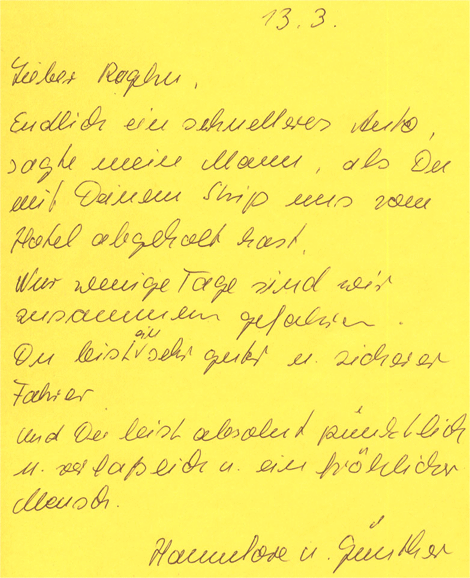 13.3.
Lieber Raghu,
Endlich ein schnelleres Auto,
sagte mein Mann, als Du
mit Deinem Ship uns vom
Hotel abgeholt hast.
Nur wenige Tage sind wir
zusammen gefahren.
Du bist ein sehr guter u. sicherer
Fahrer
und Du bist absolut pünktlich
u. verlaßlich u. ein fröhlicher
Mensch.
Hannelore u. Günther